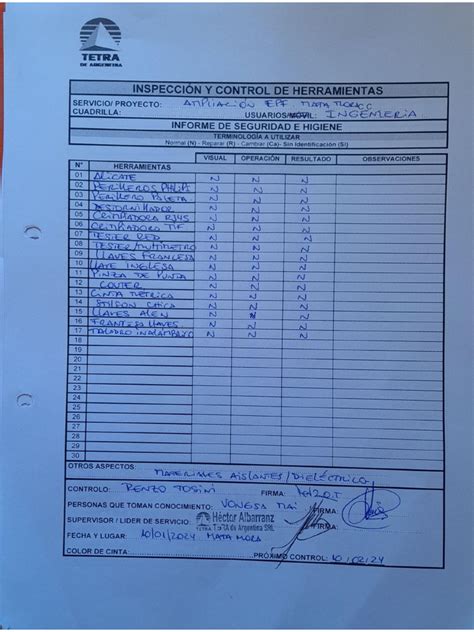 TETRA
DE ARGENTINA
INSPECCIÓN Y CONTROL DE HERRAMIENTAS
SERVICIO/ PROYECTO: AMPLIACIÓN EPF MATA MORA
CUADRILLA: USUARIOS/MOVIL: INGENIERIA
INFORME DE SEGURIDAD E HIGIENE
TERMINOLOGÍA A UTILIZAR
Normal (N) - Reparar (R) - Cambiar (Ca)- Sin Identificación (SI)
N° HERRAMIENTAS VISUAL OPERACIÓN RESULTADO OBSERVACIONES
01 ALICATE N N N
02 PERILLEROS PHILIPS N N N
03 PERILLERO PALETA N N N
04 DESTORNILLADOR N N N
05 CRIMPIADORA RJ45 N N N
06 CRIMPIADORA N N N
07 TESTER RED N N N
08 TESTER/MULTIMETRO N N N
09 LLAVES FRANCESA N N N
10 LLAVE INGLESA N N N
11 PINZA DE PUNTA N N N
12 CUTTER N N N
13 CINTA METRICA N N N
14 CHICA N N N
15 LLAVES ALEN N N N
16 LLAVES N N N
17 TALADRO INALAMBRICO N N N
18
19
20
21
22
23
24
25
26
27
28
29
30
OTROS ASPECTOS: MATERIALES AISLANTES/DIELÉCTRICO
CONTROLO: RENZO TOSINI FIRMA:
PERSONAS QUE TOMAN CONOCIMIENTO: FIRMA
SUPERVISOR / LIDER DE SERVICIO: Héctor Albarranz FIRMA:
TETRA de Argentina SRL
FECHA Y LUGAR: 10/01/2024 MATA MORA
COLOR DE CINTA: PRÓXIMO CONTROL: 10/02/24